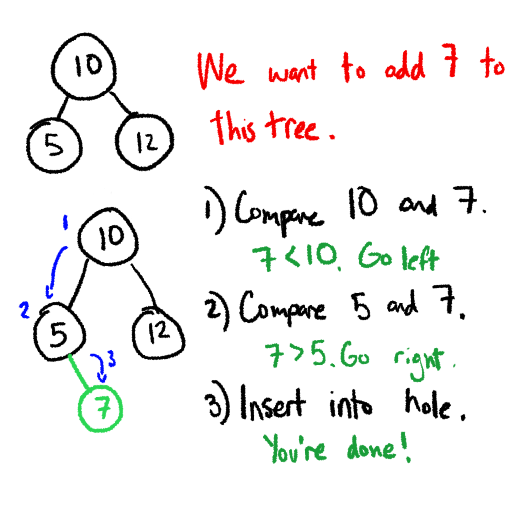 10
5
12
We want to add 7 to
this tree.
1
10
2
5
12
3
7
1) Compare 10 and 7.
7<10. Go left
2) Compare 5 and 7.
7>5. Go right.
3) Insert into hole.
You're done!